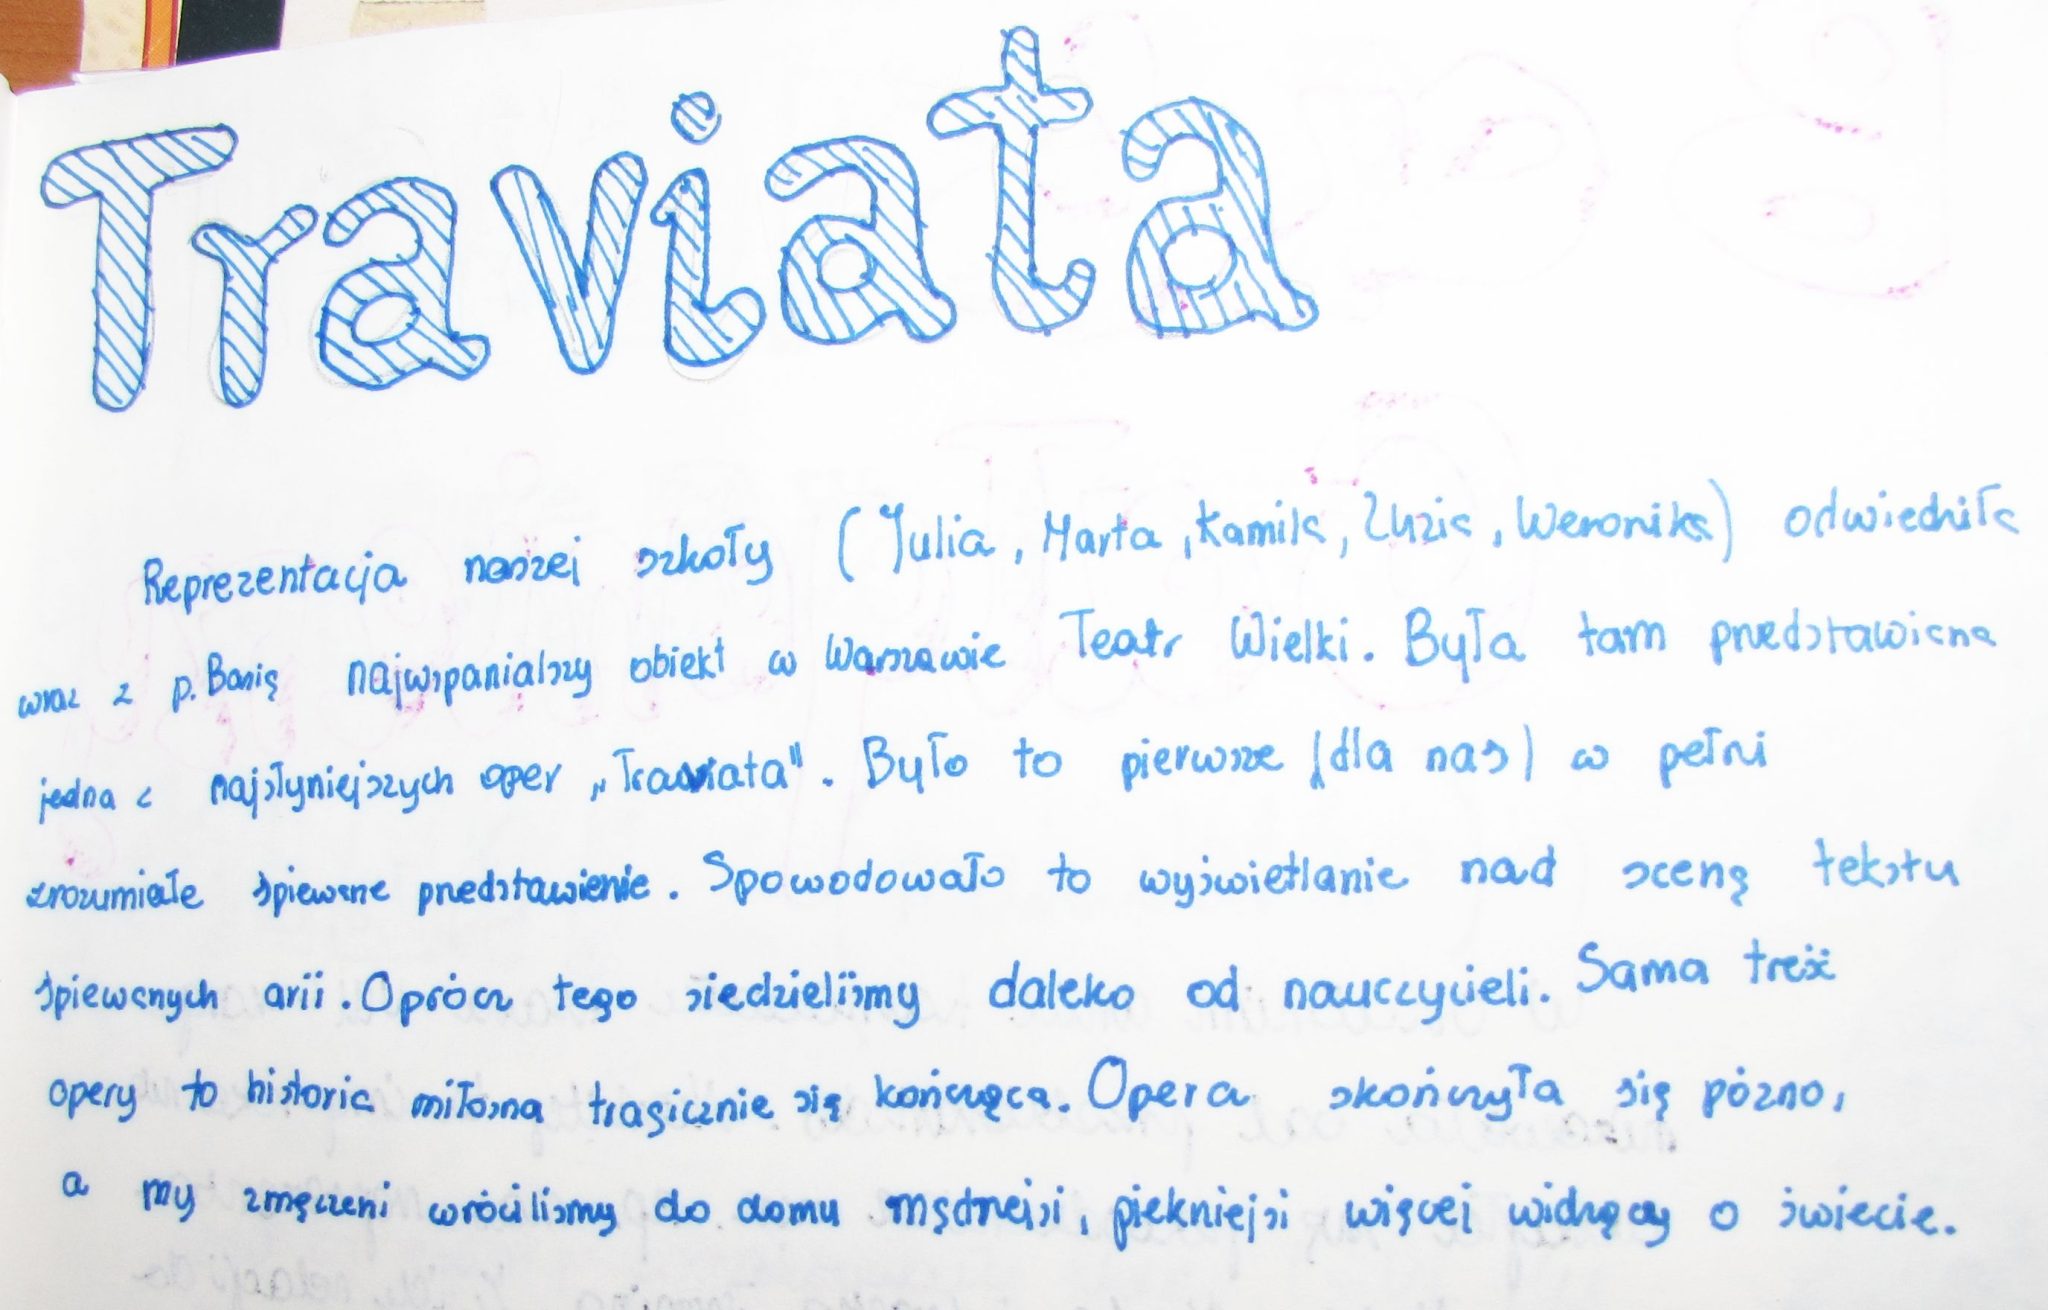 Traviata
Reprezentacja naszej szkoły (Julia, Marta, Kamila, Zuzia, Weronika) odwiedziła
wraz z p. Basią najwspanialszy obiekt w Warszawie Teatr Wielki. Była tam przedstawiona
jedna z najsłyniejszych oper „Traviata". Było to pierwsze (dla nas) w pełni
zrozumiałe śpiewane przedstawienie. Spowodowało to wyświetlanie nad sceną tekstu
śpiewanych arii. Oprócz tego siedzieliśmy daleko od nauczycieli. Sama treść
opery to historia miłosna tragicznie się kończąca. Opera skończyła się późno,
a my zmęczeni wróciliśmy do domu mądrzejsi, piękniejsi więcej widzący o świecie.